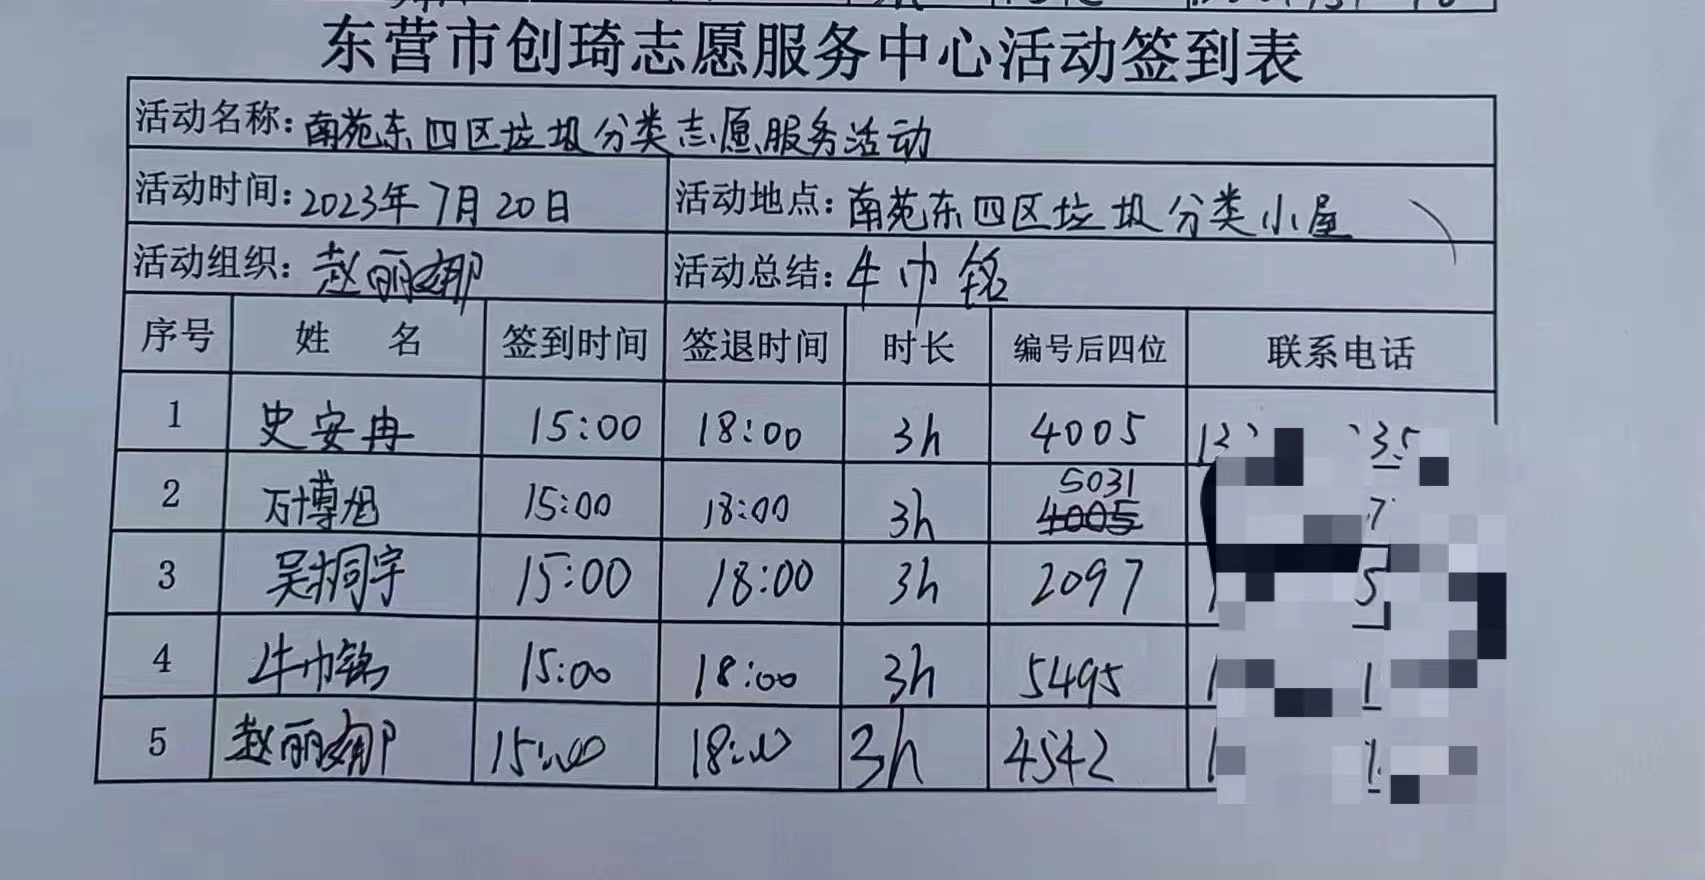 东营市创琦志愿服务中心活动签到表
活动名称：南苑东四区垃圾分类志愿服务活动
活动时间：2023年7月20日 活动地点：南苑东四区垃圾分类小屋
活动组织：赵丽娜 活动总结：牛巾铭
序号 姓 名 签到时间 签退时间 时长 编号后四位 联系电话
1 史安冉 15:00 18:00 3h 4005
5031
2 万博旭 15:00 18:00 3h 4005
3 吴桐宇 15:00 18:00 3h 2097
4 牛巾铭 15:00 18:00 3h 5495
5 赵丽娜 15:00 18:00 3h 4542